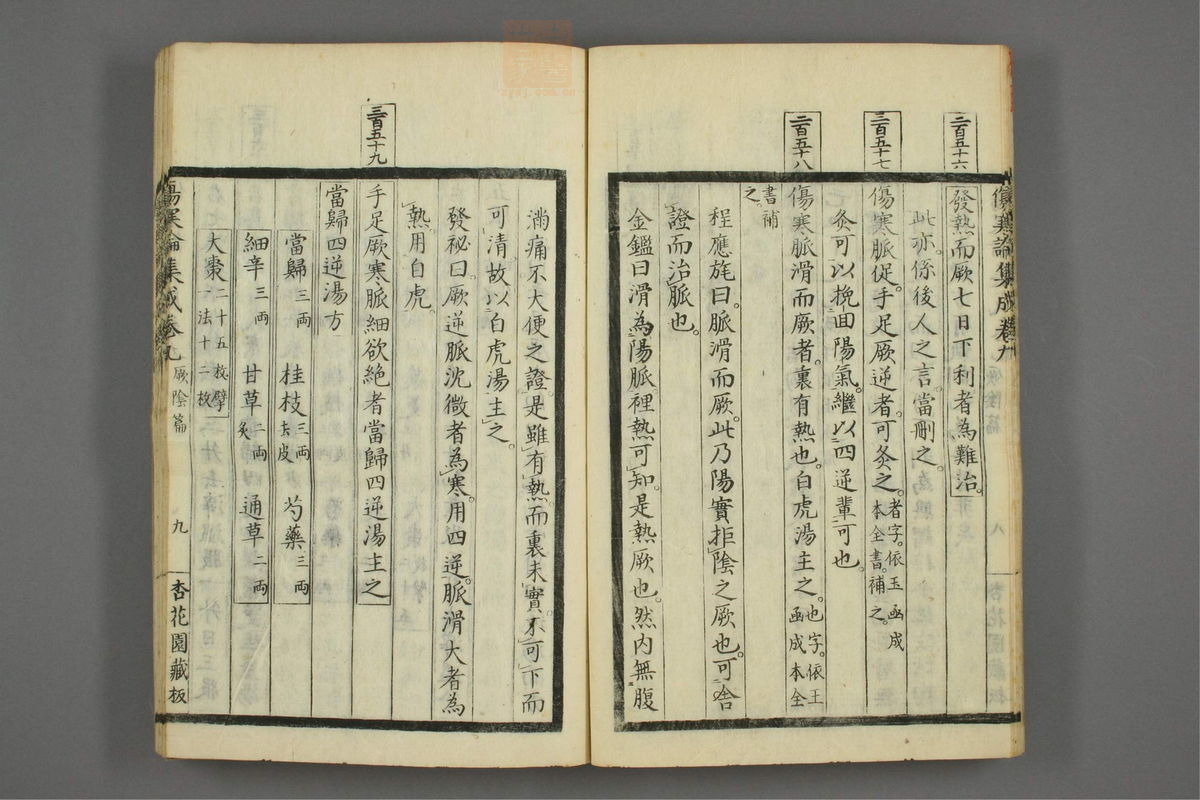 傷寒論集成卷九
厥陰篇
八
杏花園藏板
三百五十六
發熱而厥七日下利者為難治
此亦係後人之言當刪之
三百五十七
傷寒脈促手足厥逆者可灸之
者字依玉函成
本全書補之
灸可以挽回陽氣繼以四逆輩可也
三百五十八
傷寒脈滑而厥者裏有熱也白虎湯主之
也字依玉
函成本全
書補
之
程應旄曰脈滑而厥此乃陽實拒陰之厥也可舍
證而治脈也
金鑑曰滑為陽脈裡熱可知是熱厥也然內無腹
滿痛不大便之證是雖有熱而裏未實不可下而
可清故以白虎湯主之
發祕曰厥逆脈沈微者為寒用四逆脈滑大者為
熱用白虎
三百五十九
手足厥寒脈細欲絕者當歸四逆湯主之
當歸四逆湯方
當歸三兩 桂枝三兩去皮 芍藥三兩
細辛三兩 甘草二兩炙 通草二兩
大棗二十五枚擘
一法十二枚
傷寒論集成卷九
厥陰篇
九
杏花園藏板